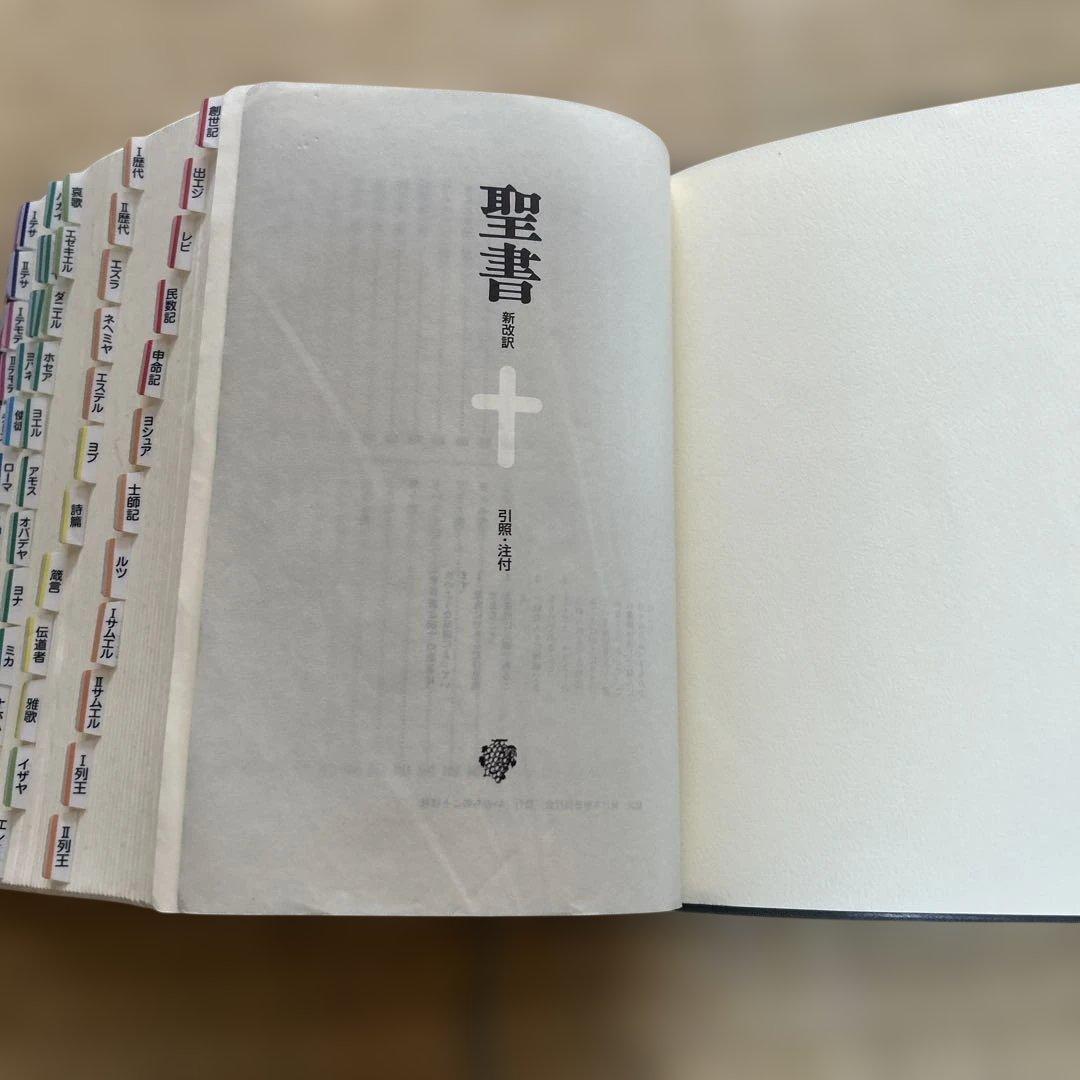 聖書
新改訳
引照・注付
創世記
出エジ
レビ
民数記
申命記
ヨシュア
士師記
ルツ
Ⅰサムエル
Ⅱサムエル
Ⅰ列王
Ⅱ列王
Ⅰ歴代
Ⅱ歴代
エズラ
ネヘミヤ
エステル
ヨブ
詩篇
箴言
伝道者
雅歌
イザヤ
哀歌
エゼキエル
ダニエル
ホセア
ヨエル
アモス
オバデヤ
ヨナ
ミカ
ハガイ
ヨハネ
使徒
ローマ
Ⅰテサ
Ⅱテサ
Ⅰテモテ
Ⅱテモテ